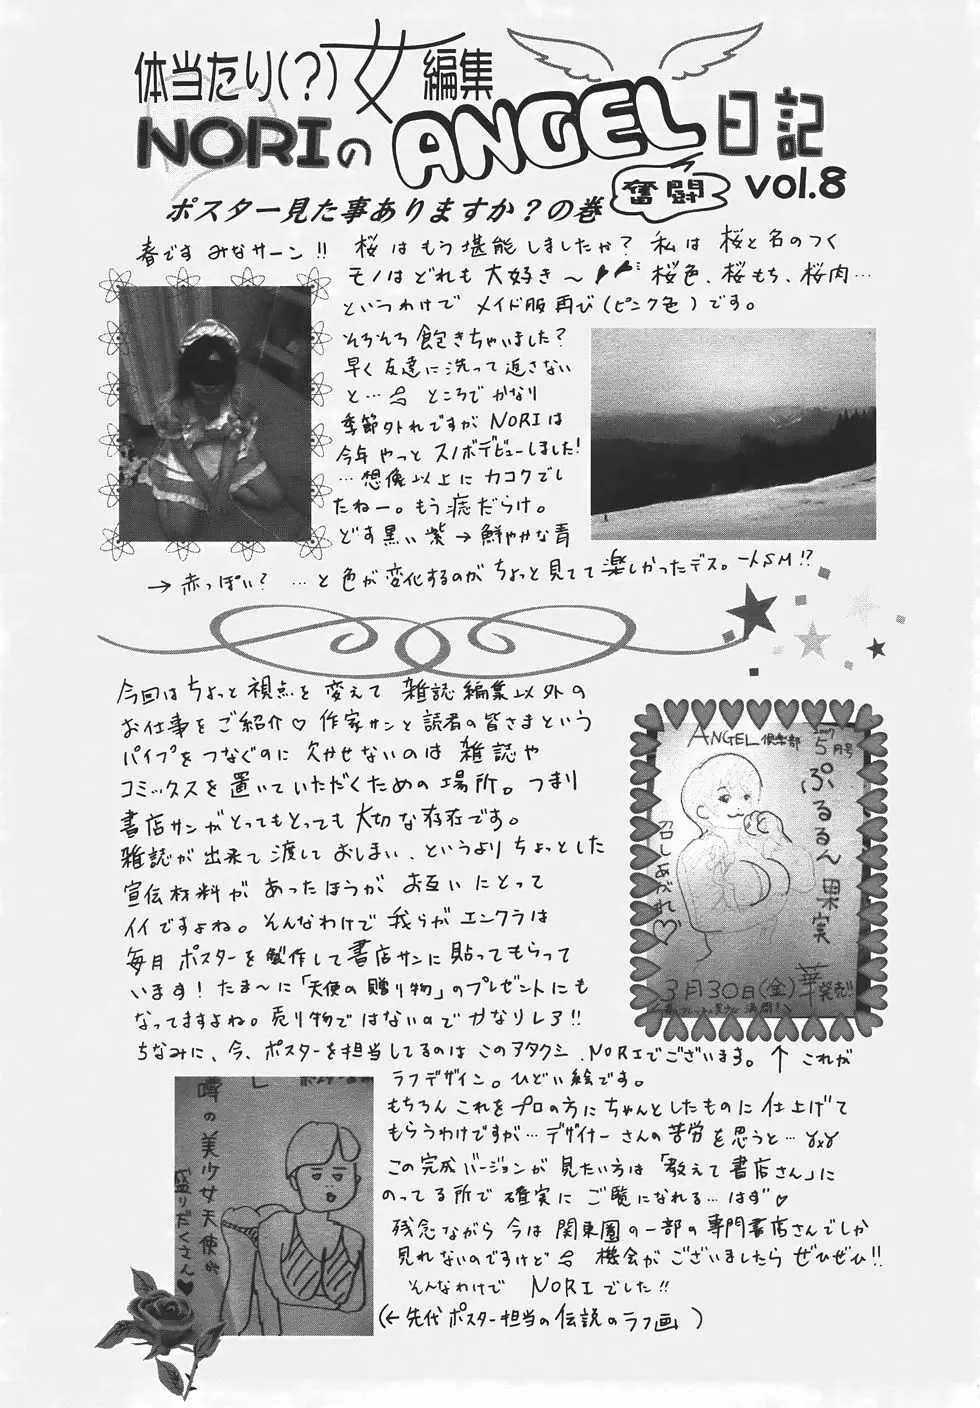 体当たり(?)女編集
NORIのANGEL日記
奮闘
vol.8
ポスター見た事ありますか?の巻
春です みなサーン!! 桜はもう堪能しましたか? 私は桜と名のつく
モノはどれも大好き〜 桜色、桜もち、桜肉…
というわけで メイド服再び(ピンク色)です。
そろそろ飽きちゃいました?
早く友達に洗って返さない
と… ところでかなり
季節外れですが NORIは
今年やっとスノボデビューしました!
…想像以上にカコクでし
たねー。もう痣だらけ。
どす黒い紫→鮮やかな青
→赤っぽい? …と色が変化するのがちょっと見てて楽しかったデス。一人SM!?
今回はちょっと視点を変えて 雑誌編集以外の
お仕事をご紹介♡ 作家サンと読者の皆さまという
パイプをつなぐのに欠かせないのは 雑誌や
コミックスを置いていただくための場所。つまり
書店サンがとってもとっても大切な存在です。
雑誌が出来て渡しておしまい、というよりちょっとした
宣伝材料があったほうが お互いにとって
イイですよね。そんなわけで我らがエンクラは
毎月ポスターを製作して書店サンに貼ってもらって
います! たま〜に「天使の贈り物」のプレゼントにも
なってますよね。売り物ではないのでかなりレア!!
ちなみに、今、ポスターを担当してるのはこのアタクシ、NORIでございます。↑これが
ラフデザイン。ひどい絵です。
もちろんこれをプロの方にちゃんとしたものに仕上げて
もらうわけですが…デザイナーさんの苦労を思うと…
この完成バージョンが見たい方は「教えて書店さん」に
のってる所で確実にご覧になれる…はず♡
残念ながら今は関東圏の一部の専門書店さんでしか
見れないのですけど 機会がございましたらぜひぜひ!!
そんなわけで NORIでした!!
(←先代ポスター担当の伝説のラフ画)
ANGEL倶楽部
5月号
ぷるるん果実
召しあがれ♡
3月30日(金)発売!!
噂の美少女天使が
盛りだくさん♥